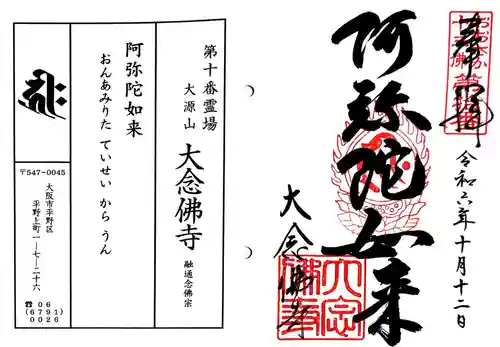 奉拝
阿弥陀如来
大念佛寺
令和六年十月十二日
第十番霊場
大源山
大念佛寺
融通念佛宗
阿弥陀如来
おんあみりた ていせい から うん
〒547-0045
大阪市平野区
平野上町一ー七ー二十六
☎06
(6791)
0026